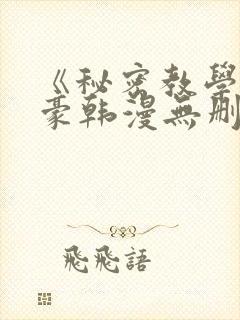 《秘密教學
豪韩漫無刪
飛飛語